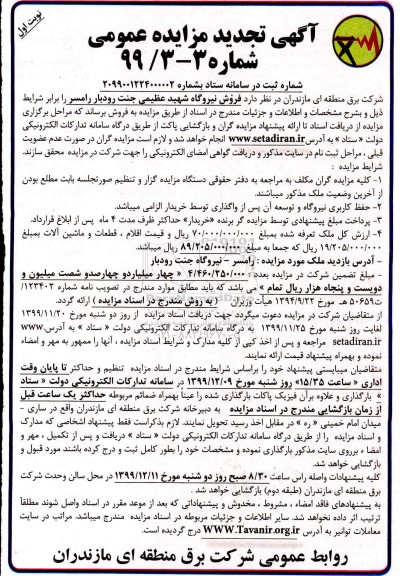 نوبت اول
آگهی تجدید مزایده عمومی
شماره ۳-۳/ ۹۹
شماره ثبت در سامانه ستاد بشماره ۲۰۹۹۰۰۱۲۲۴۰۰۰۰۰۲
شرکت برق منطقه ای مازندران در نظر دارد فروش نیروگاه شهید عظیمی جنت رودبار رامسر را برابر شرایط
ذیل و بشرح مشخصات و اطلاعات و جزئیات مندرج در اسناد از طریق مزایده به فروش برساند که مراحل برگزاری
مزایده از دریافت اسناد تا ارائه پیشنهاد مزایده گران و بازگشایی پاکت از طریق درگاه سامانه تدارکات الکترونیکی
دولت « ستاد » به آدرس www.setadiran.ir انجام خواهد شد و لازم است مزایده گران در صورت عدم عضویت
قبلی ، مراحل ثبت نام در سایت مذکور و دریافت گواهی امضای الکترونیکی را جهت شرکت در مزایده محقق سازند.
شرایط مزایده :
۱- کلیه مزایده گران مکلف به مراجعه به دفتر حقوقی دستگاه مزایده گزار و تنظیم صورتجلسه بابت مطلع بودن
از آخرین وضعیت ملک مذکور میباشند.
۲- حفظ کاربری نیروگاه و توسعه آن پس از واگذاری توسط خریدار الزامی میباشد.
۳- پرداخت مبلغ پیشنهادی توسط مزایده گر برنده «خریدار» حداکثر ظرف مدت ۴ ماه پس از ابلاغ قرارداد.
۴- ارزش کل ملک تعرفه شده بمبلغ ۷۰/۰۰۰/۰۰۰/۰۰۰ ریال و قیمت اقلام ، قطعات و ماشین آلات بمبلغ
۱۹/۲۰۵/۰۰۰/۰۰۰ ریال که جمعا به مبلغ ۸۹/۲۰۵/۰۰۰/۰۰۰ ریال میباشد.
- آدرس بازدید ملک مورد مزایده : رامسر - نیروگاه جنت رودبار
- مبلغ تضمین شرکت در مزایده بعدد: ۴/۴۶۰/۲۵۰/۰۰۰ « چهار میلیاردو چهارصدو شصت میلیون و
دویست و پنجاه هزار ریال تمام » می باشد که باید مطابق موارد مندرج در تصویب نامه شماره ۱۲۳۴۰۲/
ت۵۰۶۵۹ هـ مورخ ۱۳۹۴/۹/۲۲ هیأت وزیران ( به روش مندرج در اسناد مزایده ) ارائه گردد.
از متقاضیان شرکت در مزایده دعوت میگردد جهت دریافت اسناد مزایده از روز دو شنبه مورخ ۱۳۹۹/۱۱/۲۰
لغایت روز شنبه مورخ ۱۳۹۹/۱۱/۲۵ به درگاه سامانه تدارکات الکترونیکی دولت « ستاد » به آدرس www.
setadiran.ir مراجعه و پس از اخذ کپی از کلیه مدارک و شرایط اسناد مزایده ، آنها را ممهور به مهر و امضاء
نموده و بهمراه پیشنهاد قیمت ارائه نمایند.
متقاضیان میبایستی پیشنهاد خود را براساس شرایط مندرج در اسناد مزایده تنظیم و حداکثر تا پایان وقت
اداری « ساعت ۱۵/۳۵» روز شنبه مورخ ۱۳۹۹/۱۲/۰۹ در سامانه تدارکات الکترونیکی دولت « ستاد
» بارگذاری و علاوه برآن فیزیک پاکات بارگذاری شده را عیناً بهمراه ضمائم مربوطه حداکثر یک ساعت قبل
از زمان بازگشایی مندرج در اسناد مزایده به دبیرخانه شرکت برق منطقه ای مازندران واقع در ساری -
میدان امام خمینی « ره » در مقابل اخذ رسید تحویل نمایند. لازم بذکراست فقط پیشنهاد اشخاصی که مدارک
و اسناد مزایده را از طریق درگاه سامانه تدارکات الکترونیکی دولت « ستاد » دریافت و پس از تکمیل ، مهر و
امضاء برروی سایت مذکور بارگذاری نموده و مشخصات خود را بطور کامل ثبت و درج کرده باشند مورد قبول و
بازگشایی خواهد شد.
کلیه پیشنهادات واصله راس ساعت ۸/۳۰ صبح روز دو شنبه مورخ ۱۳۹۹/۱۲/۱۱ در محل سالن وحدت شرکت
برق منطقه ای مازندران (طبقه دوم) بازگشایی خواهد شد .
به پیشنهادهای فاقد امضاء ، مشروط ، مخدوش و پیشنهاداتی که بعد از موعد مقرر در اسناد واصل شوند مطلقاً
ترتیب اثر داده نخواهد شد. سایر اطلاعات و جزئیات مربوطه در اسناد مزایده مندرج میباشد. مراتب در سایت
معاملات توانیر به آدرس WWW.Tavanir.org.ir درج گردیده است.
روابط عمومی شرکت برق منطقه ای مازندران